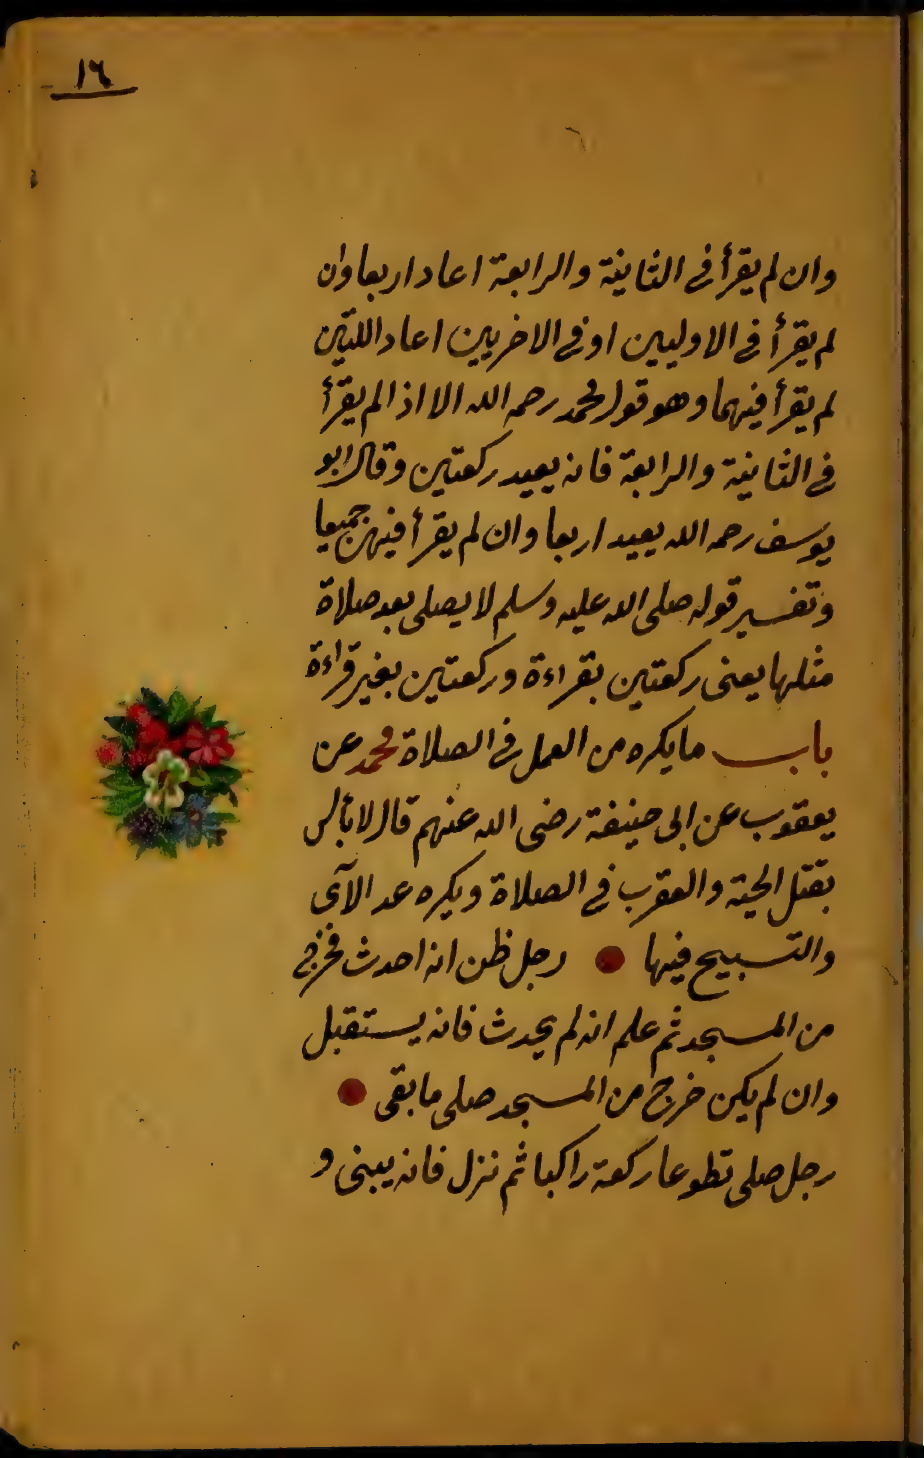 ١٦
وان لم يقرأ في الثانية والرابعة اعاد اربعا وان
لم يقرأ في الاوليين او في الاخريين اعاد اللتين
لم يقرأ فيهما وهو قول محمد رحمه الله الا اذا لم يقرأ
في الثانية والرابعة فانه يعيد ركعتين وقال ابو
يوسف رحمه الله يعيد اربعا وان لم يقرأ فيهن جميعا
وتفسير قوله صلى الله عليه وسلم لا يصلى بعد صلاة
مثلها يعنى ركعتين بقراءة وركعتين بغير قراءة
باب ما يكره من العمل في الصلاة محمد عن
يعقوب عن ابى حنيفة رضى الله عنهم قال لا بأس
بقتل الحية والعقرب في الصلاة ويكره عد الآى
والتسبيح فيها رجل ظن انه احدث فخرج
من المسجد ثم علم انه لم يحدث فانه يستقبل
وان لم يكن خرج من المسجد صلى ما بقى
رجل صلى تطوعا ركعة راكبا ثم نزل فانه يبنى و